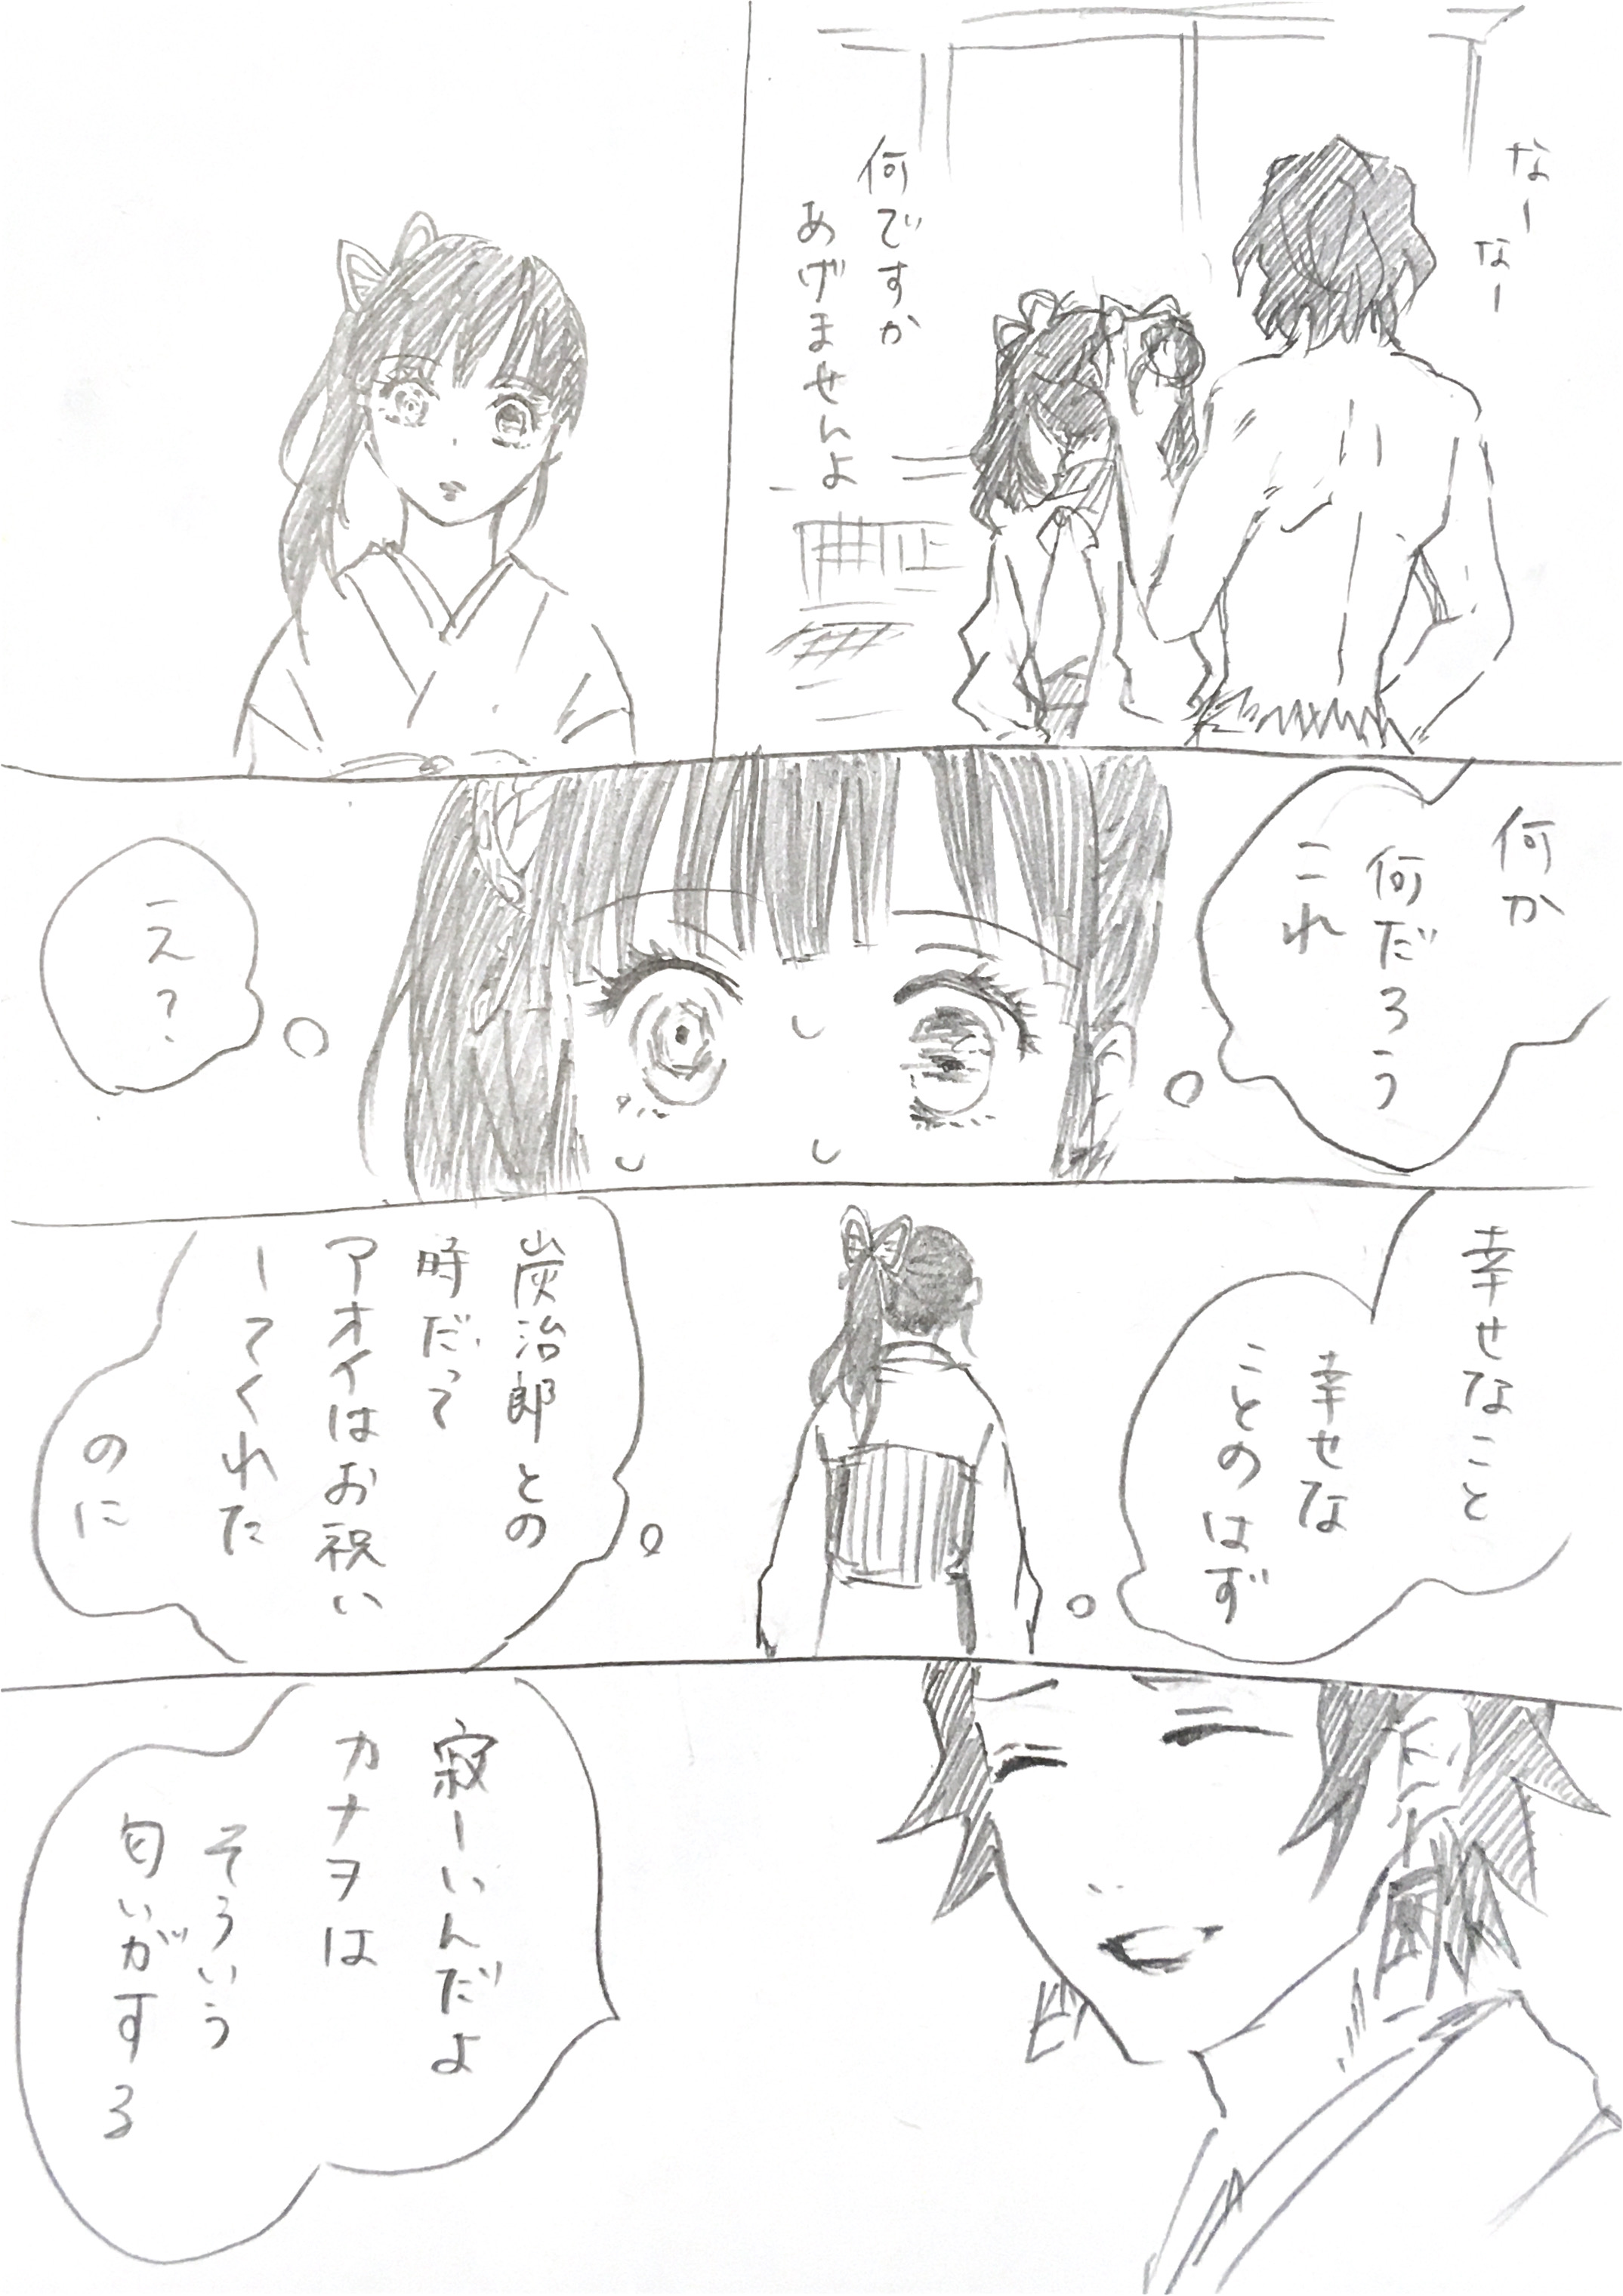 なーなー
何ですか
あげませんよ
何か
何だろう
これ
え?
幸せなこと
幸せな
ことのはず
炭治郎との
時だって
アオイはお祝い
してくれた
のに
寂しいんだよ
カナヲは
そういう
匂いがする